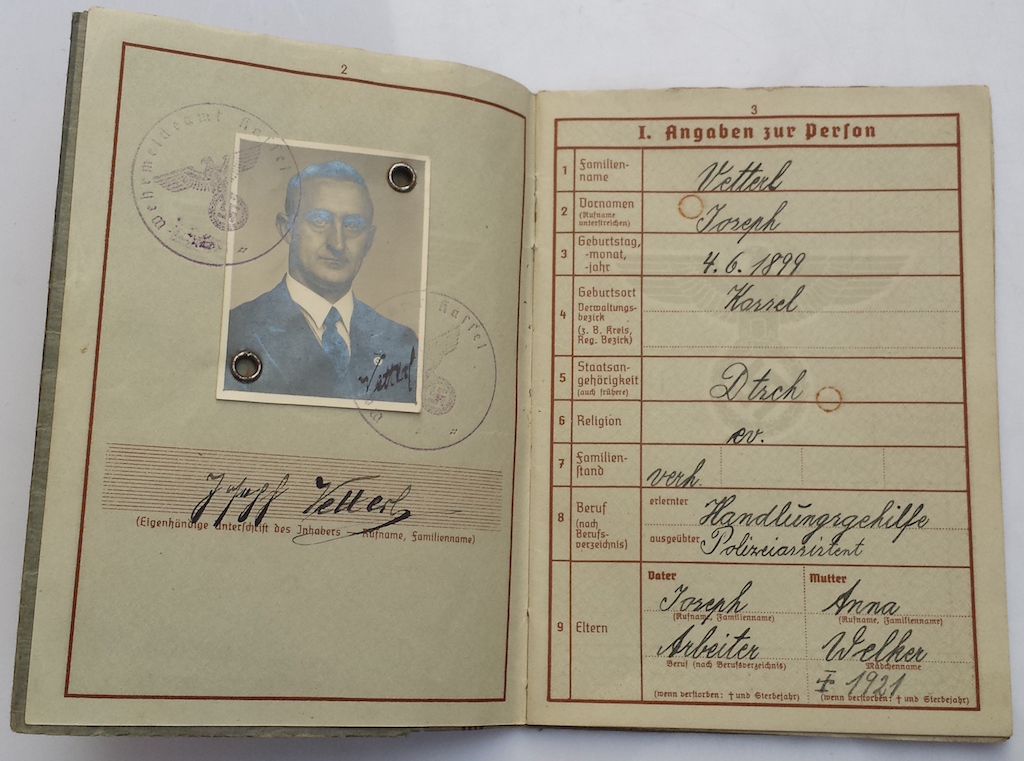 2
Wehrmeldeamt Kassel
Vetterl
Kassel
Joseph Vetterl
(Eigenhändige Unterschrift des Inhabers — Rufname, Familienname)
3
I. Angaben zur Person
1 Familien-
name
Vetterl
2 Vornamen
(Rufname
unterstreichen)
Joseph
3 Geburtstag,
-monat,
-jahr
4. 6. 1899
4 Geburtsort
Verwaltungs-
bezirk
(z. B. Kreis,
Reg. Bezirk)
Kassel
5 Staatsan-
gehörigkeit
(auch frühere)
Dtsch
6 Religion
ev.
7 Familien-
stand
verh.
8 Beruf
(nach
Berufs-
verzeichnis)
erlernter Handlungsgehilfe
ausgeübter Polizeiassistent
9 Eltern
Vater
Joseph
(Rufname, Familienname)
Arbeiter
Beruf (nach Berufsverzeichnis)
(wenn verstorben: † und Sterbejahr)
Mutter
Anna
(Rufname, Familienname)
Welker
Mädchenname
† 1921
(wenn verstorben: † und Sterbejahr)